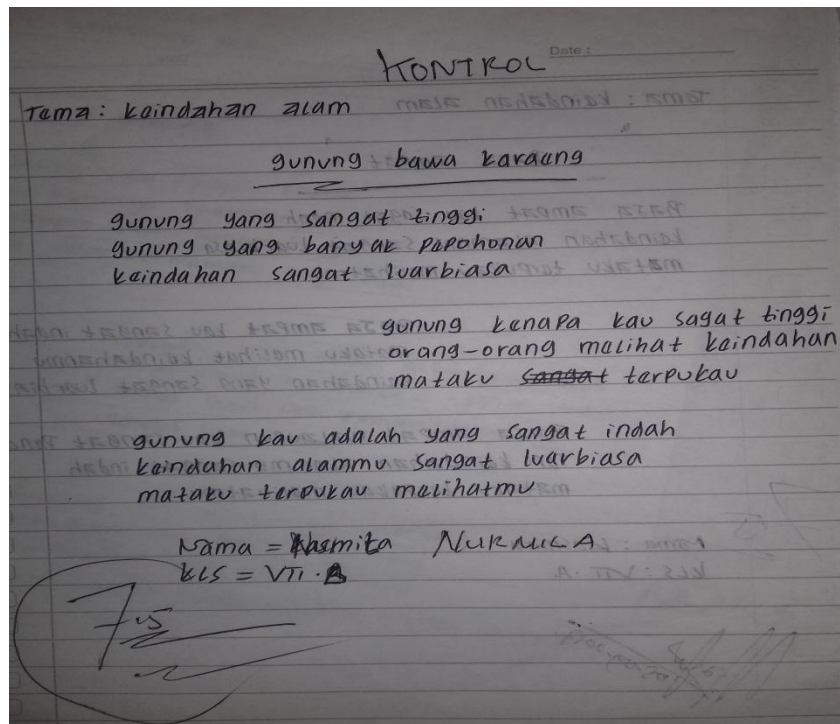 Date :
KONTROL
Tema : keindahan alam
gunung bawa karaeng
gunung yang sangat tinggi
gunung yang banyak pepohonan
keindahan sangat luarbiasa
gunung kenapa kau sagat tinggi
orang-orang melihat keindahan
mataku sangat terpukau
gunung kau adalah yang sangat indah
keindahan alammu sangat luarbiasa
mataku terpukau melihatmu
Nama = NURMILA
KLS = VII.